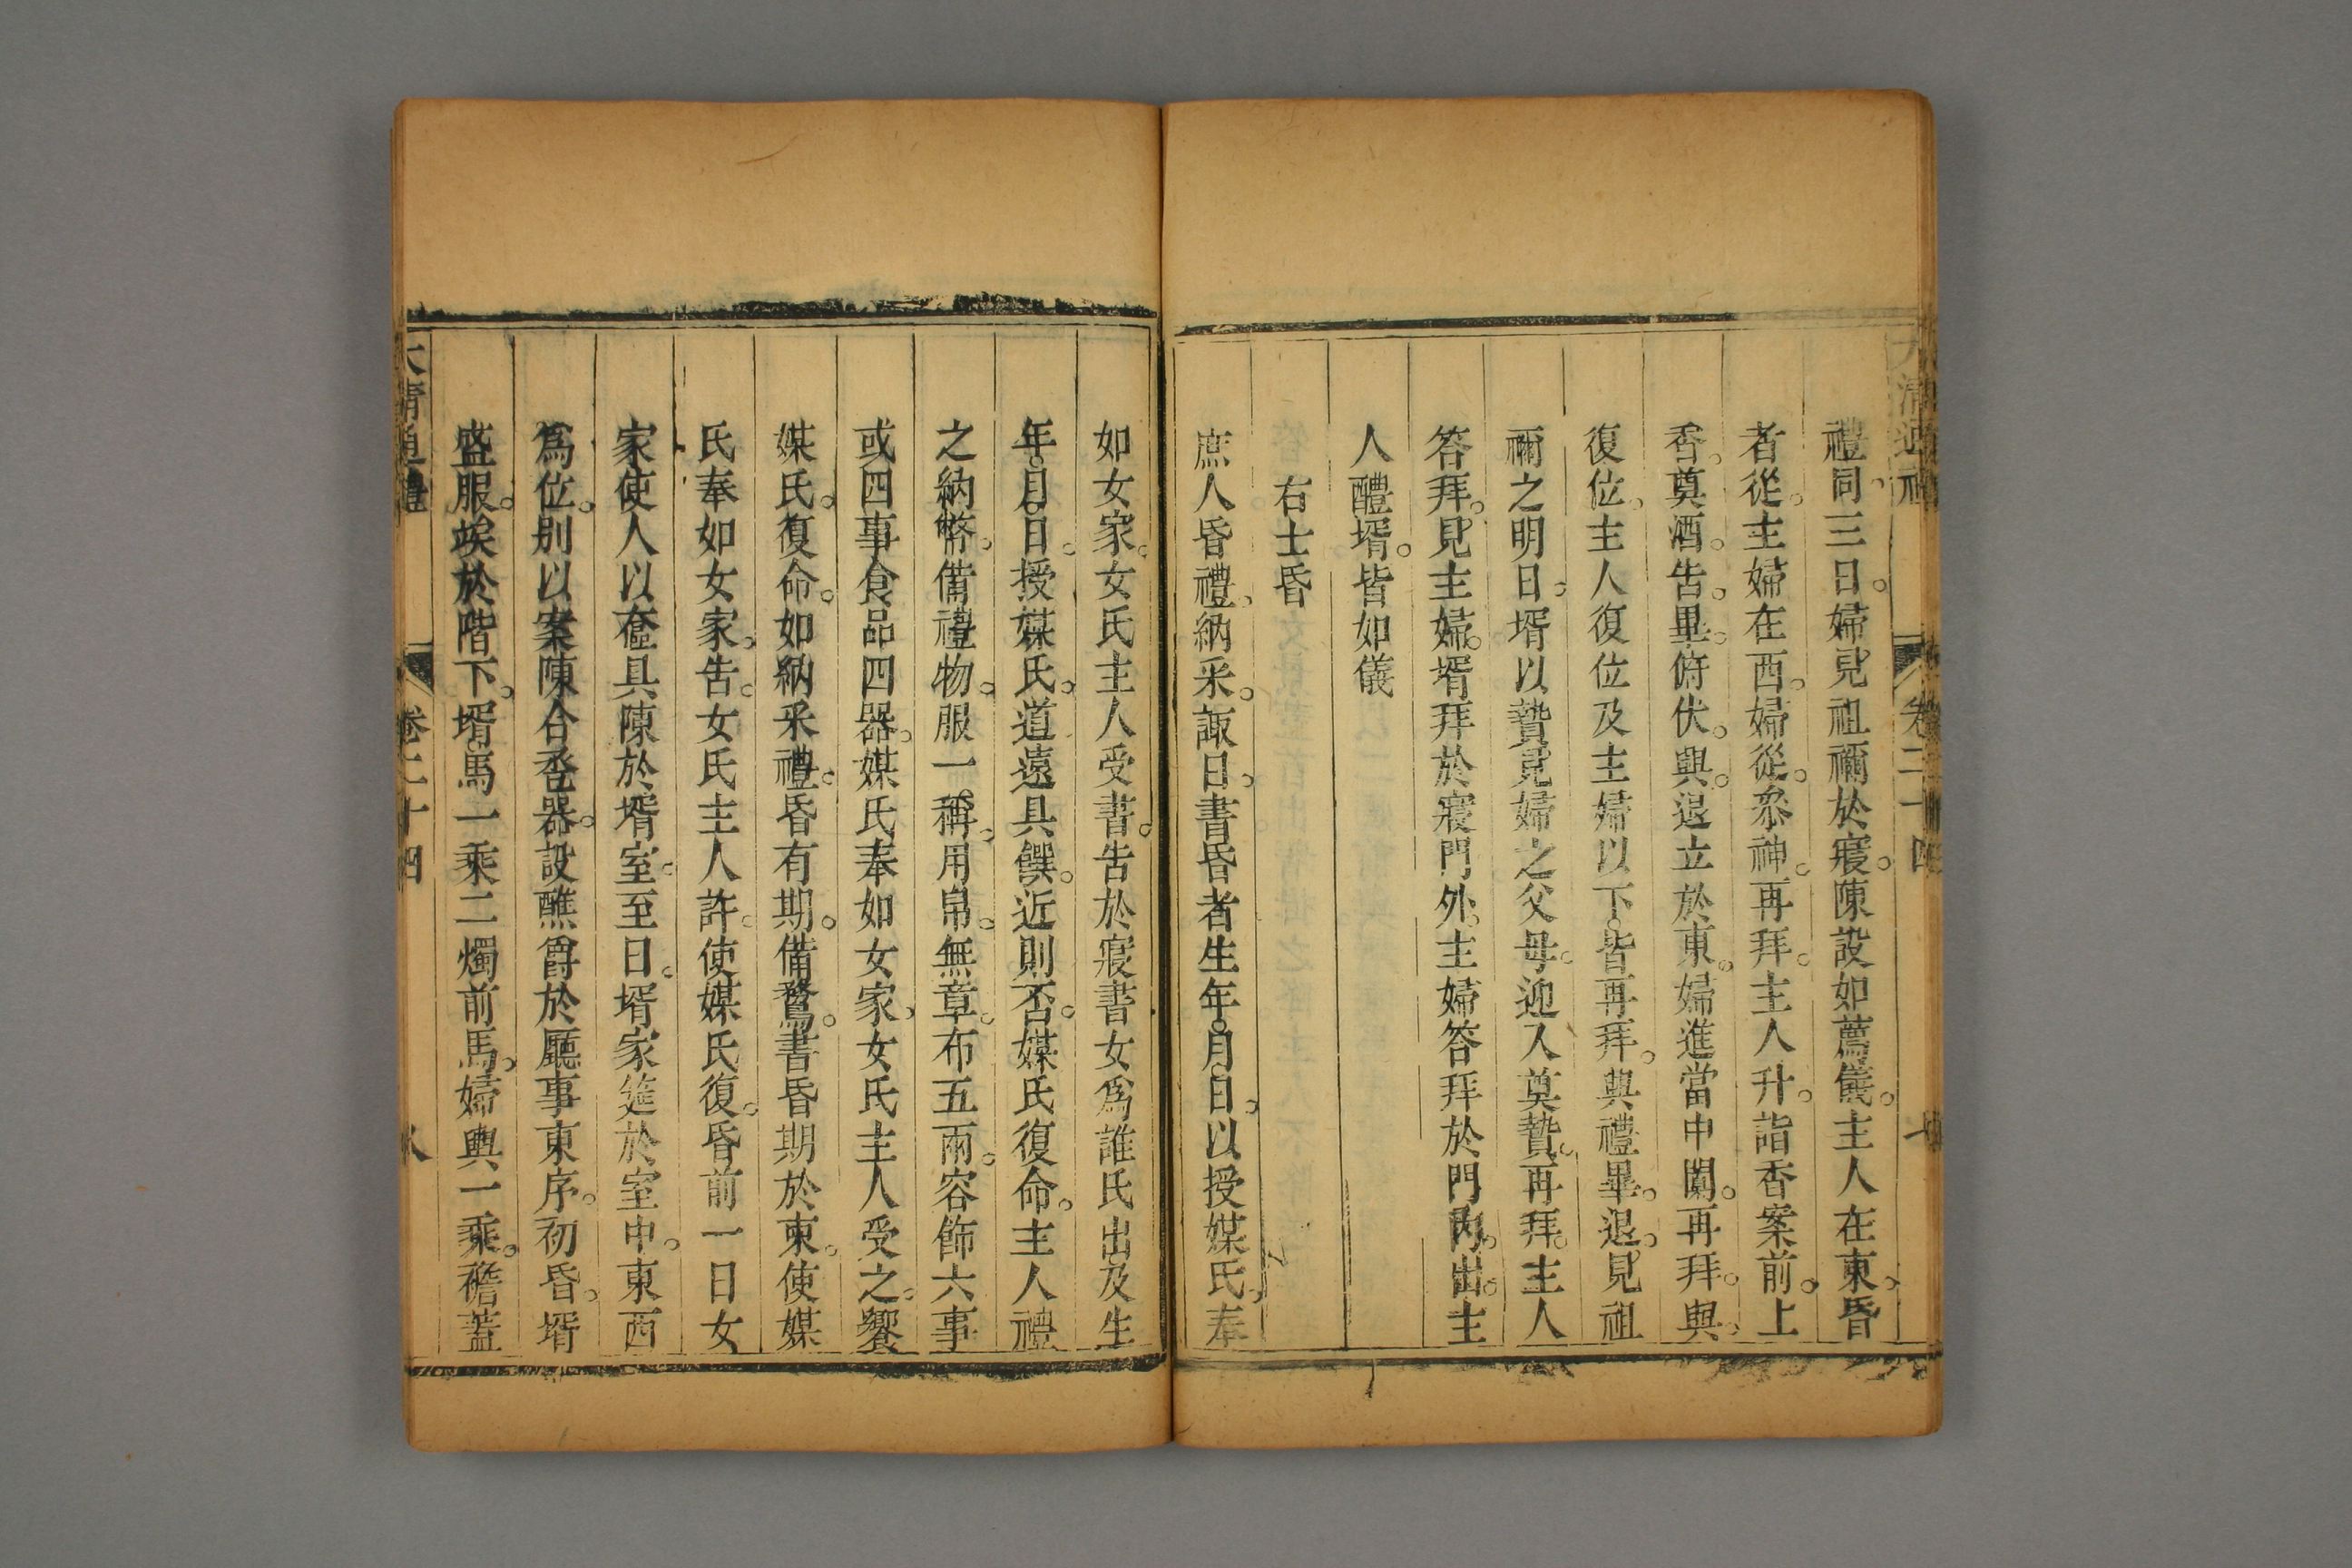 大清通禮 卷二十四 七
禮同。三日。婦見祖禰於寢。陳設如薦儀。主人在東。昏
者從。主婦在西。婦從。叅神。再拜。主人升。詣香案前。上
香。奠酒。告。畢。俯伏。興。退立於東。婦進當中闑。再拜。興。
復位。主人復位及主婦以下。皆再拜。興禮畢。退。見祖
禰之明日。壻以贄見婦之父母。迎入奠贄。再拜。主人
答拜。見主婦。壻拜於寢門外。主婦答拜於門內。出。主
人醴壻。皆如儀
右士昏
庶人昏禮。納采。諏日。書昏者生年。月。日。以授媒氏。奉
如女家。女氏主人受書。告於寢書女爲誰氏出及生
年。月。日。授媒氏。道遠具饌。近則否。媒氏復命。主人禮
之納幣。備禮物。服一。稱。用帛。無章。布五兩。容飾六事
或四事食品四器。媒氏奉如女家。女氏主人受之。饗
媒氏。復命。如納采禮。昏有期。備鶩。書昏期於柬。使媒
氏奉如女家。告。女氏主人許。使媒氏復。昏前一日女
家使人以奩具陳於壻室。至日。壻家筵於室中。東西
爲位。別以案陳合卺器。設醮爵於廳事東序。初昏。壻
盛服。竢於階下。壻馬一乘二燭前馬。婦輿一乘。襜蓋
大清通禮 卷二十四 八